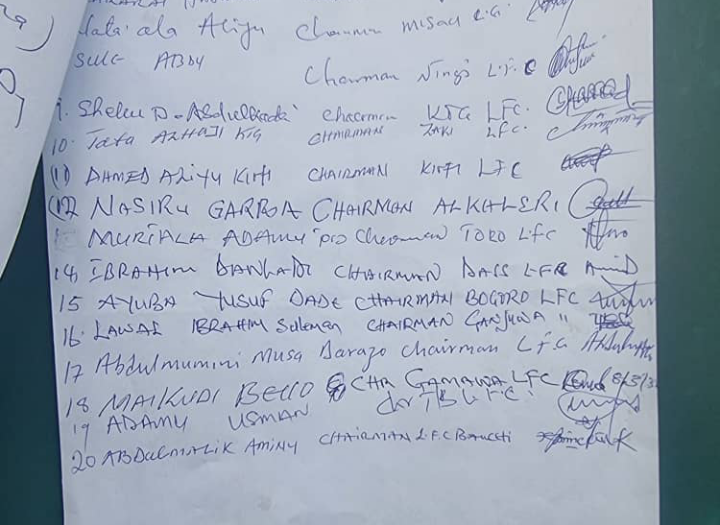 Aliyu Chairman Misau L.G.
Sule Abby Chairman Ningi L.F.C
9. Shehu D. Abdulkadir Chairman KTG LFC.
10. Tata ALHAJI KTG CHAIRMAN ZAKI LFC.
(11) AHMED ALIYU KIRFI CHAIRMAN KIRFI LFC
(12) NASIRU GARBA CHAIRMAN ALKALERI
MURTALA ADAMU Chairman TORO LFC
14. IBRAHIM DANLADI CHAIRMAN DASS LFC
15 AYUBA YUSUF DADE CHAIRMAN BOGORO LFC
16. LAWAL IBRAHIM Suleman CHAIRMAN GANJUWA "
17 Abdulmumini Musa Darazo Chairman L.F.C
18 MAIKUDI BELLO CHR GAMAWA LFC
19 ADAMU USMAN L.F.C.
20 ABDULMALIK AMINU CHAIRMAN L.F.C BAUCHI